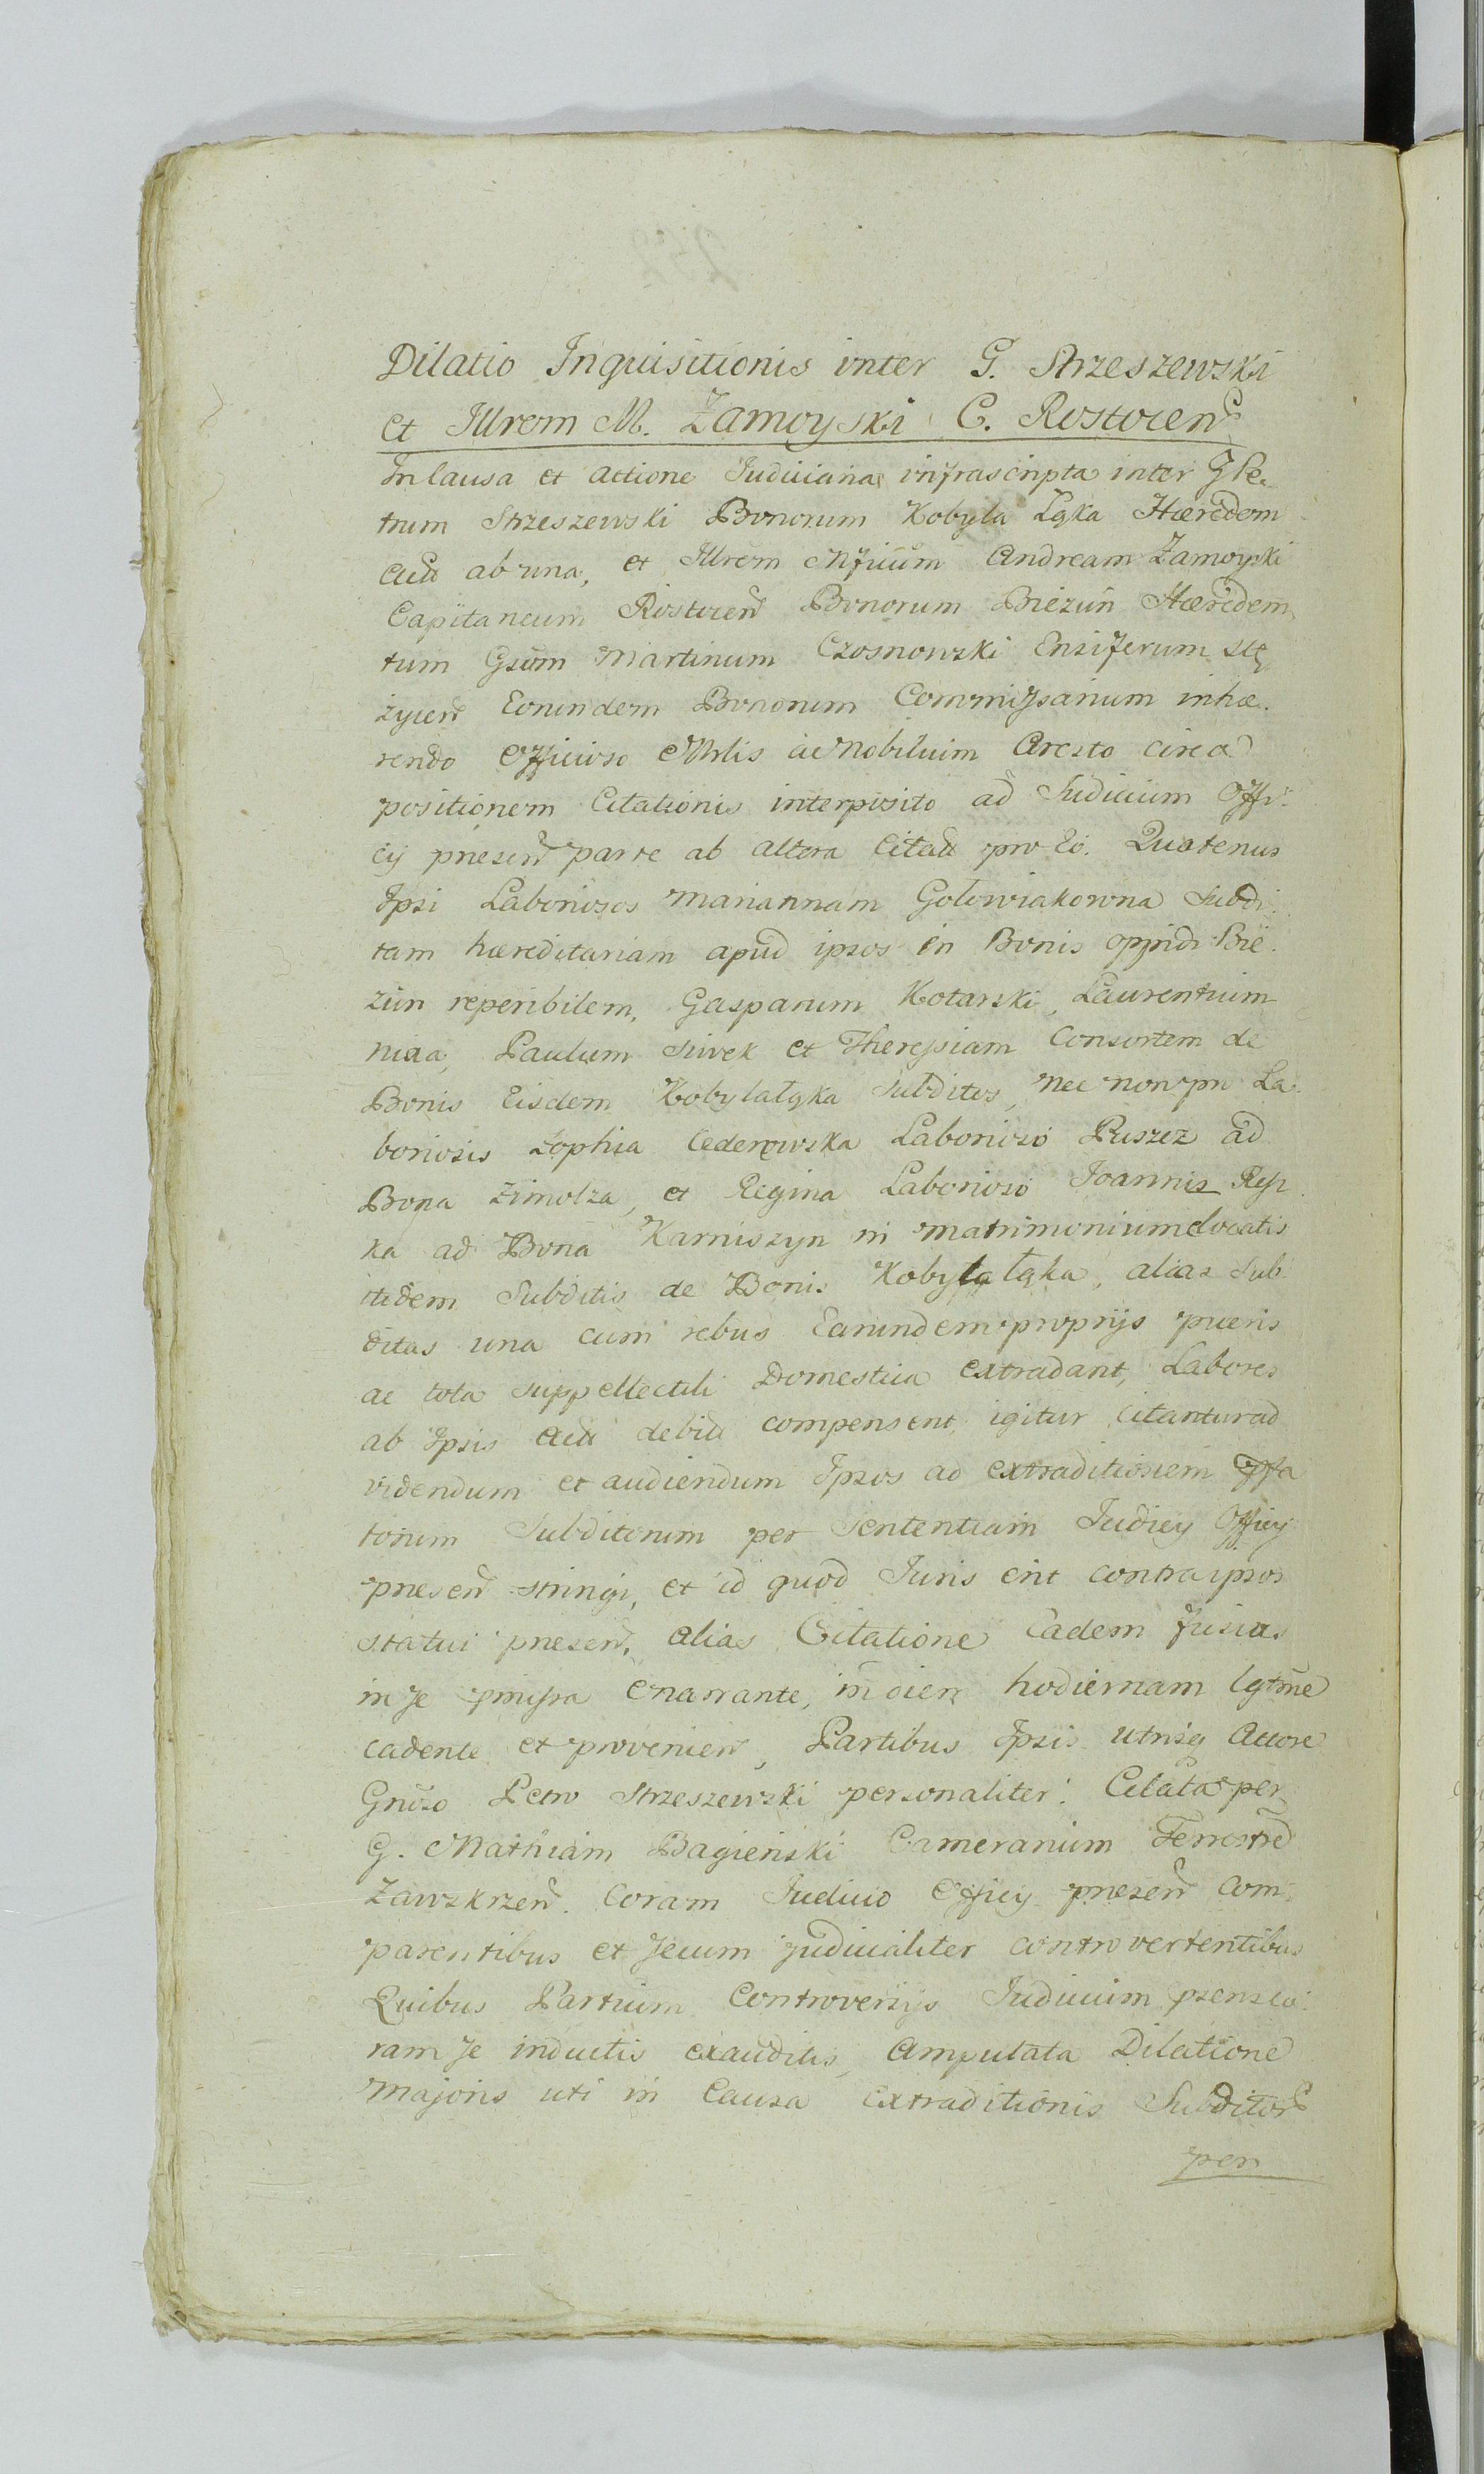 Dilatio Inquisitionis inter G. Strzeszewski
et Illrem M. Zamoyski C. Rostocien̄
In Causa et actione Judiciaria infrascripta inter G Pe-
trum Strzeszewski Bonorum Kobyla Łąka Hæredem
ab una, et Illrem Mficum Andream Zamoyski
Capitaneum Rostocien̄ Bonorum Biezuń Hæredem
tum Gsum Martinum Czosnowski Ensiferum Stę
życien̄ Eorundem Bonorum Commissarium inhæ-
rendo Officioso Mrlis ac Nobilium Aresto circa
positionem Citationis interposito ad Judicium Offi-
cij præsen̄ parte ab altera Citatt pro Eo. Quatenus
Ipsi Laboriosos Mariannam Gołowiakowna Subdi-
tam hæreditariam apud ipsos in Bonis oppidi Bie-
zun reperibilem, Gasparum Kotarski, Laurentium
Paulum Siwek et Theressiam Consortem de
Bonis Eisdem Kobylałąka Subditos, nec non pn La-
boriosis Zophia Cederowska Laborioso Puszcz ad
Bona Zimolza, et Regina Laborioso Joannis Rep
ka ad Bona Karniszyn in matrimonium elocatis
itidem Subditis de Bonis Kobylałąka, alias Sub
ditas una cum rebus Earundem proprijs pueris
ac tota suppellectili Domestica extradant, Labores
ab Ipsis debitt compensent, igitur citantur ad
videndum et audiendum Ipsos ad extraditionem
torum Subditorum per Sententiam Judicij Officij
præsen̄ stringi, et id quod Juris erit contra ipsos
statui præsen̄, alias Citatione eadem fusius
in se pmissa enarrante, in diem hodiernam lgtme
cadente et provenien̄, Partibus Ipsis utrisq Actore
Gnoso Petro Strzeszewski personaliter. Citata per
G. Mathiam Bagieński Camerarium Terrestrē
Zawskrzen̄. Coram Judicio Officij præsen̄ com-
parentibus et secum judicialiter controvertentibus
Quibus Partium Controversijs Judicium præns co-
ram se inductis exauditis, Amputata Dilatione
Majoris uti in Causa extraditionis Subditor
per